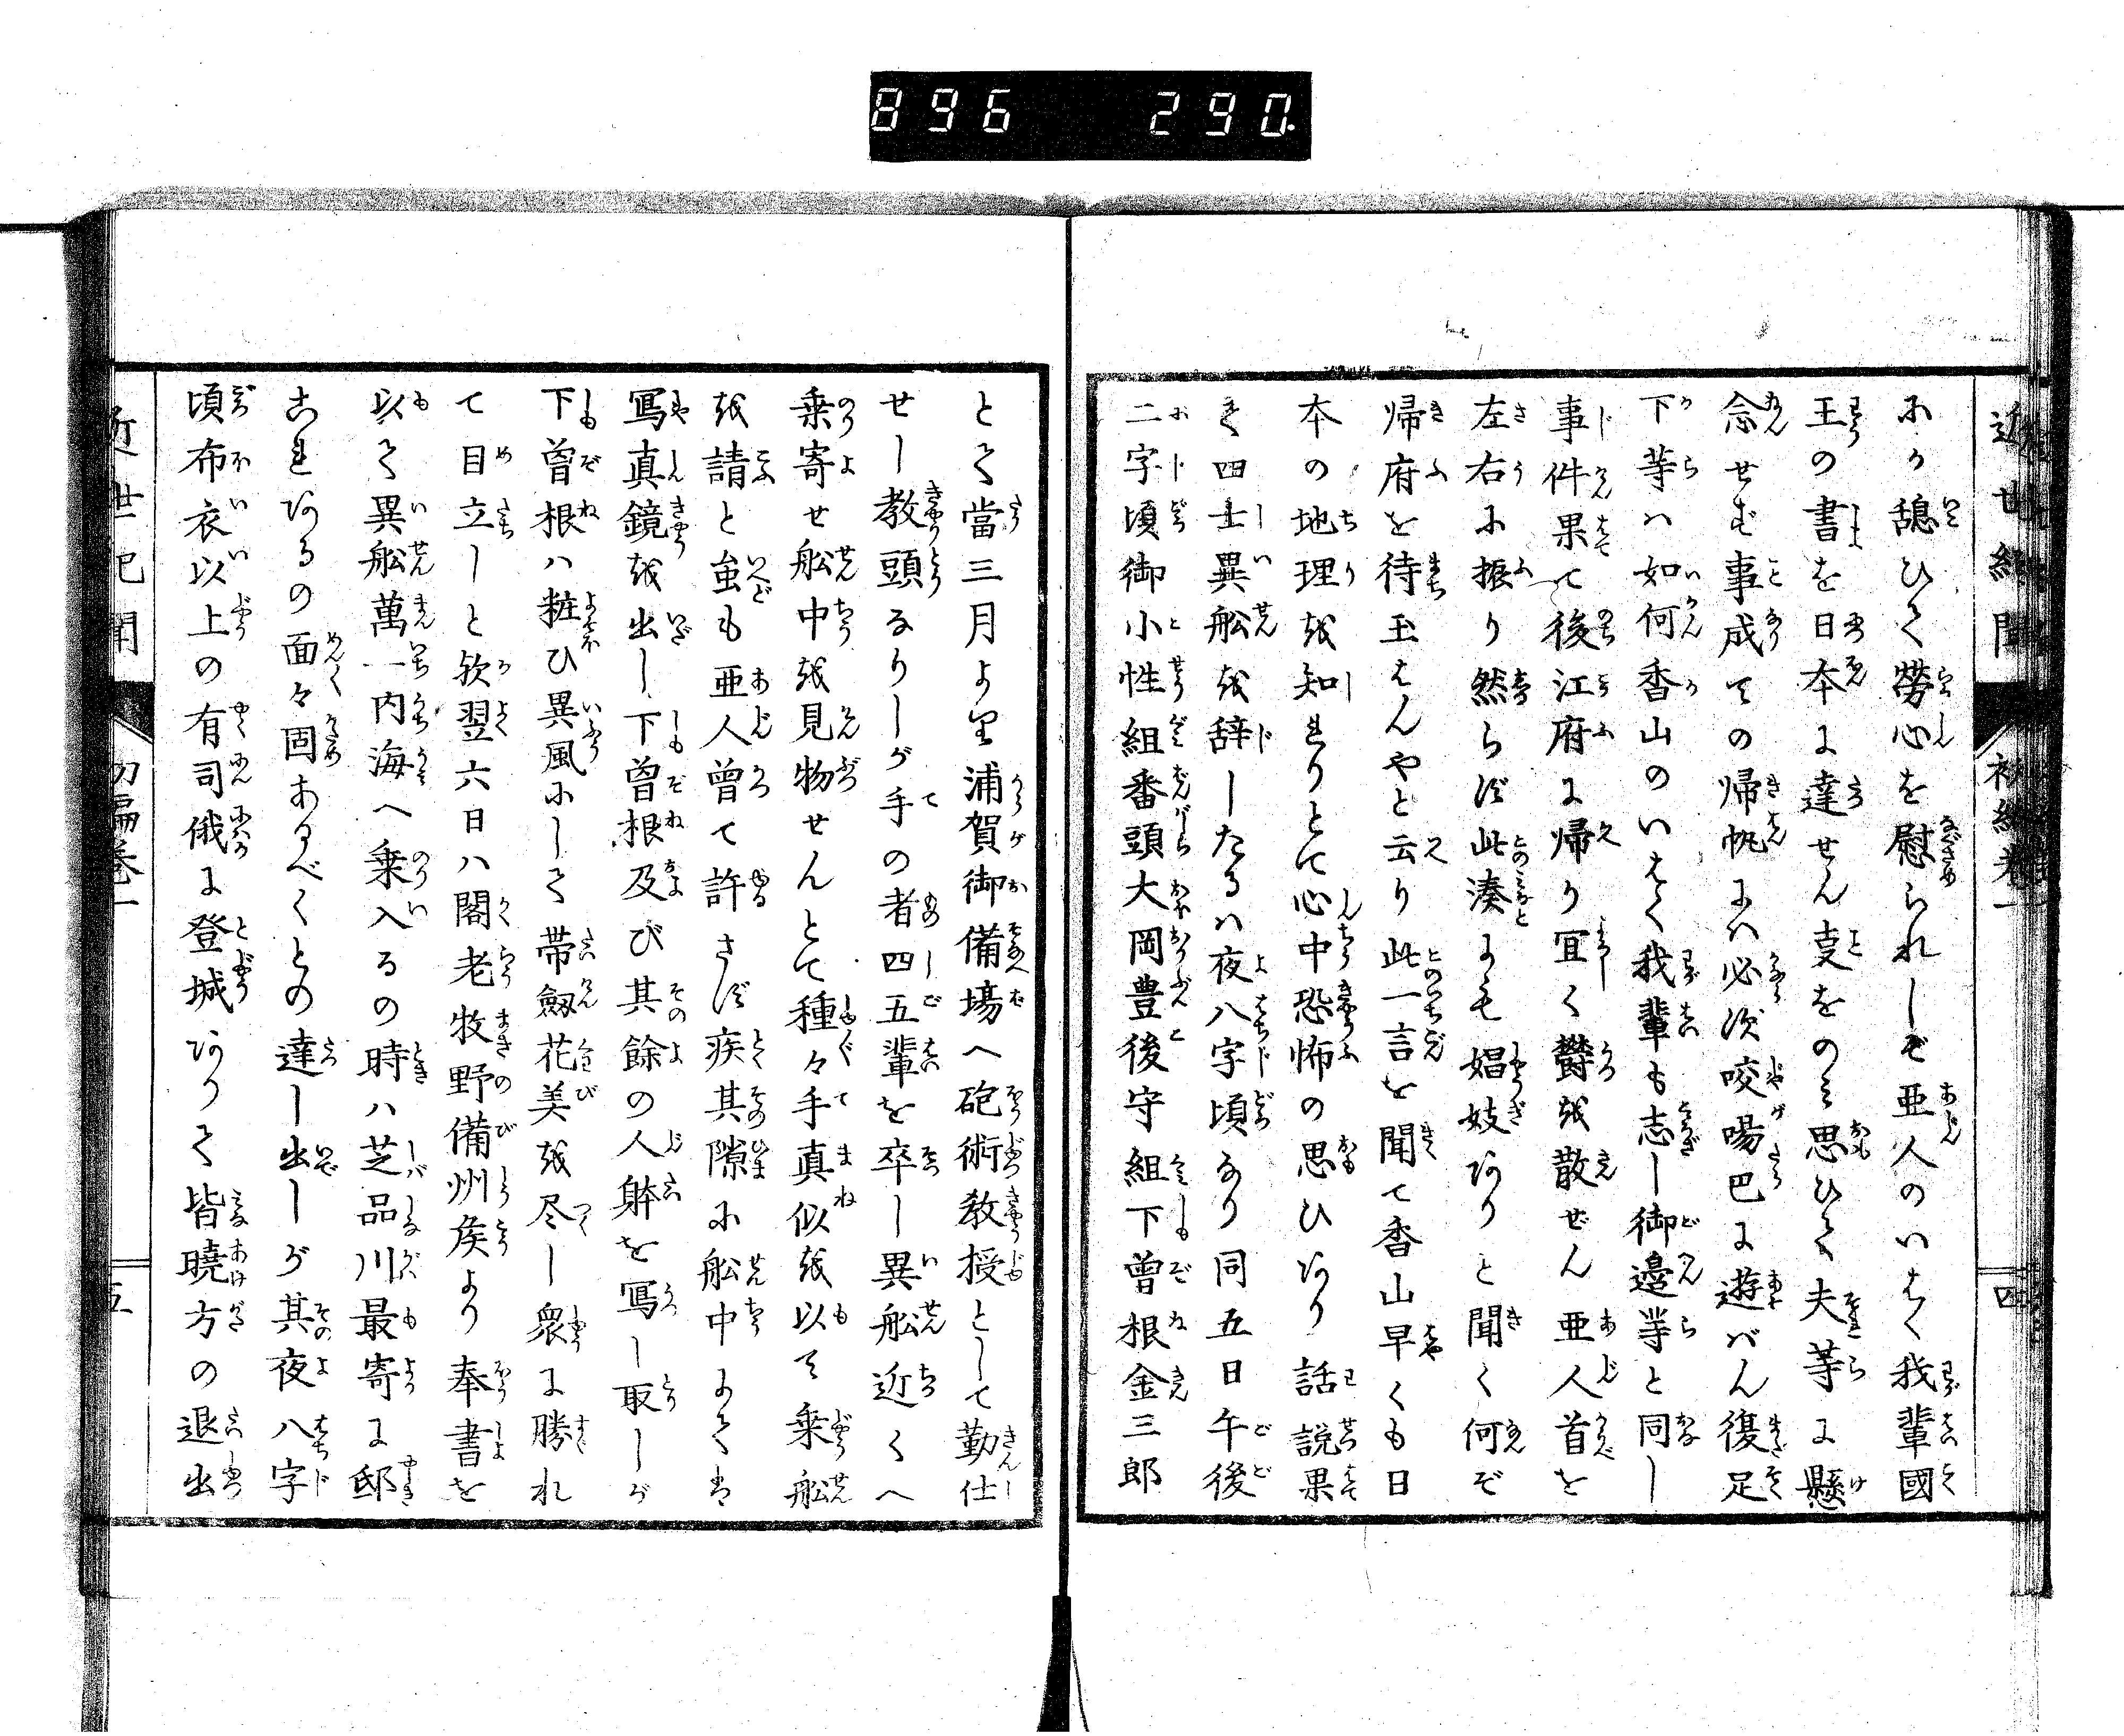 896 290
近世紀聞 初編巻一 四
ふか憩ひて勞心を慰られしぞ亜人のいはく我輩國
王の書を日本に達せん㕝をのミ思ひて夫等に懸
念せむ事成ての帰帆にハ必ず咬𠺕巴に遊バん復足
下等ハ如何香山のいはく我輩も志し御邉等と同し
事件果て後江府に帰り宜く欝を散ぜん亜人首を
左右に振り然らず此湊にも娼妓ありと聞く何ぞ
帰府を待玉はんやと云り此一言を聞て香山早くも日
本の地理を知れりとて心中恐怖の思ひあり話説果
て四士異舩を辞したるハ夜八字頃なり同五日午後
二字頃御小性組番頭大岡豊後守組下曽根金三郎
とて當三月より浦賀御備場へ砲術教授として勤仕
せし教頭なりしが手の者四五輩を卒し異舩近くへ
乗寄せ舩中を見物せんとて種々手真似を以て乗舩
を請と虽も亜人曽て許さず疾其隙に舩中にては
寫真鏡を出し下曽根及び其餘の人躰を寫し取しが
下曽根ハ粧ひ異風にして帯劔花美を尽し衆に勝れ
て目立しと欤翌六日ハ閣老牧野備州矦より奉書を
以て異舩萬一内海へ乗入るの時ハ芝品川最寄に邸
これあるの面々固あるべくとの達し出しが其夜八字
頃布衣以上の有司俄に登城ありて皆曉方の退出
近世紀聞 初編巻一 五